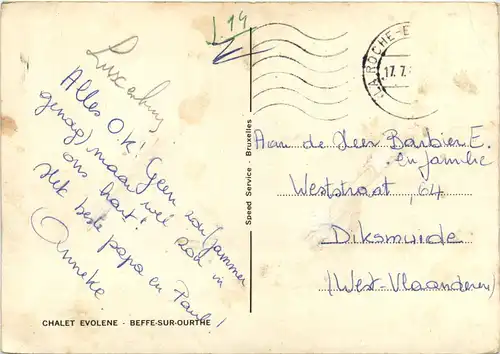 L.14
Luxemburg!
Alles O.K! Geen zon (jammer
genoeg) maar wel zon in
ons hart!
Het beste papa en Paula!
Anneke
CHALET EVOLENE - BEFFE-SUR-OURTHE
Speed Service - Bruxelles
LA ROCHE-E
17.7.
Aan de Heer Barbien E.
en familie
Weststraat, 64
Diksmuide
(West-Vlaanderen)